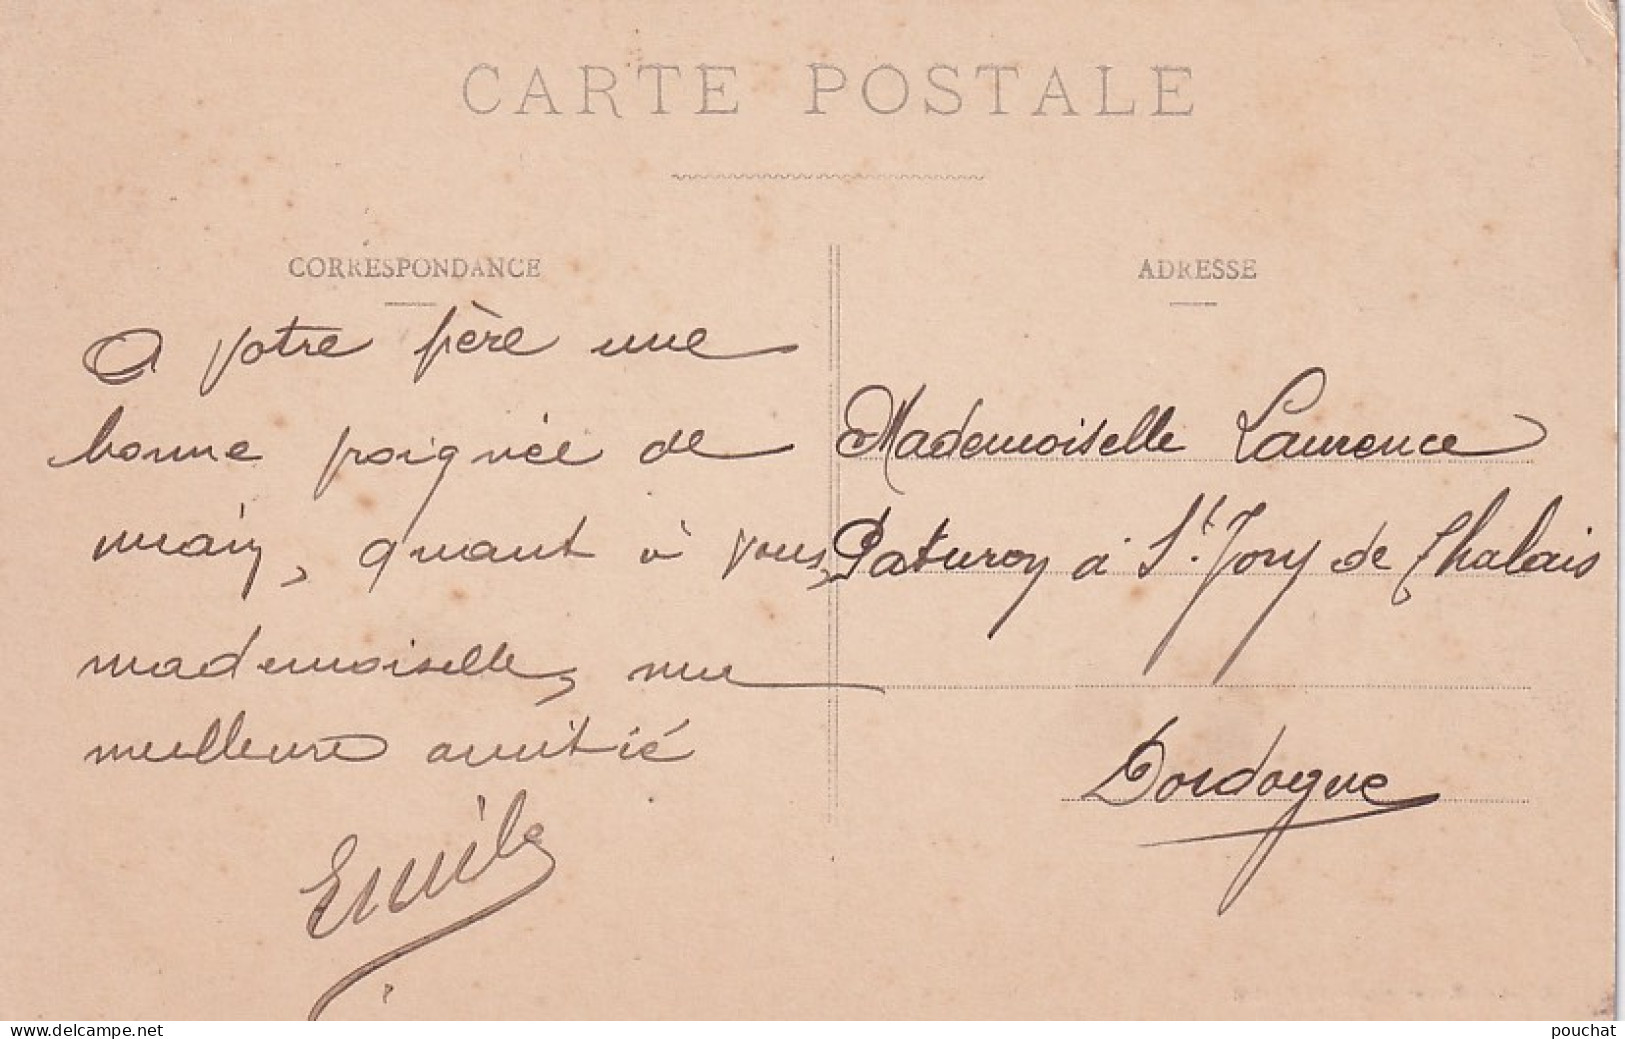 CARTE POSTALE
CORRESPONDANCE
A votre père une
bonne poignée de
main, quant à vous,
mademoiselle, une
meilleure amitié
Emile
ADRESSE
Mademoiselle Laurence
Paturoy à St. Jory de Chalais
Dordogne
www.delcampe.net
pouchat